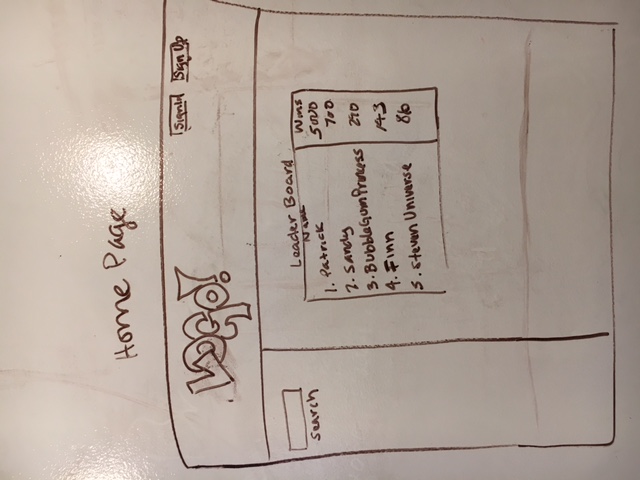 Home Page
LOGO!
SignIn Sign Up
search
Leader Board
Name Wins
1. Patrick 5000
2. Sandy 700
3. BubbleGum Princess 290
4. Finn 143
5. Steven Universe 86